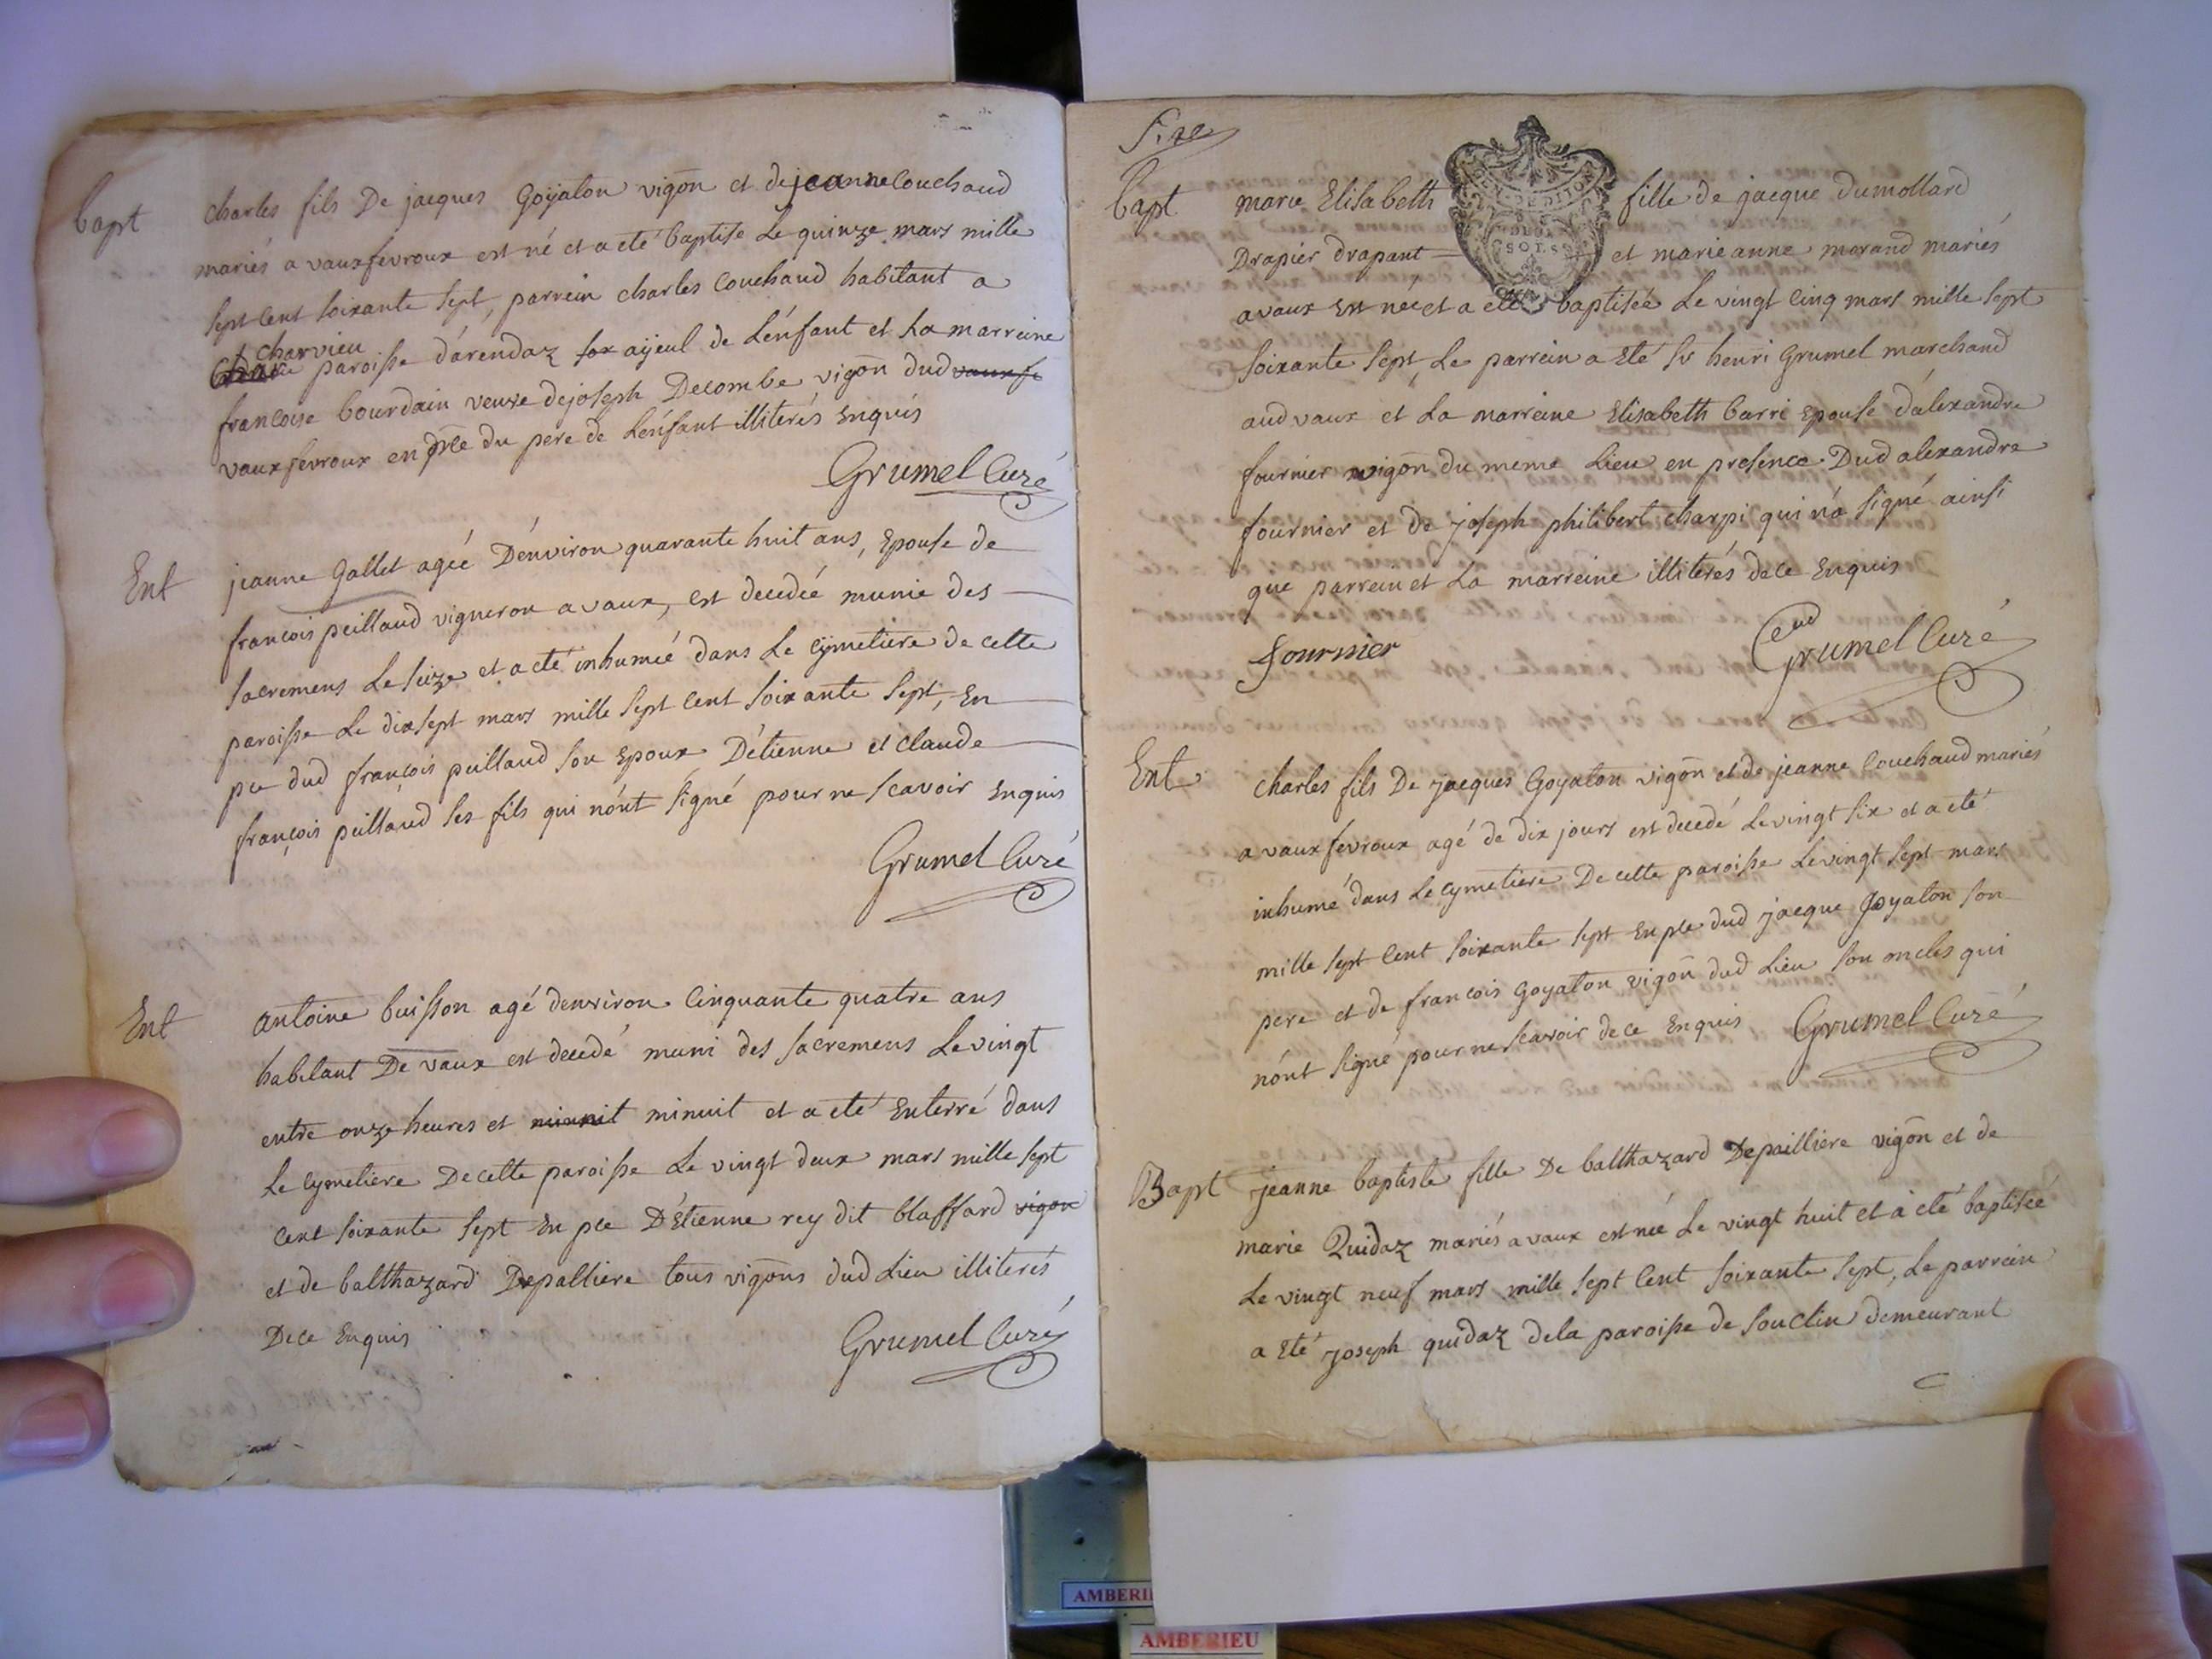 Bapt
charles fils De jacques Goÿaton vigōn et de jeanne Couchaud
mariés a vauxfevroux est né et a eté baptise Le quinze mars mille
sept Cent soixante sept, parrein charles Couchaud habitant a
charvieu
paroisse dárendaz son aÿeul de Lénfant et La marreine
francoise bourdain veuve de joseph Decombe vigōn dud vauxfe
vauxfevroux en prce du pere de Lénfant illiterés Enquis
Grumel Curé
Ent
jeanne gallet agéé Dénviron quarante huit ans, Epouse de
francois peillaud vigneron a vaux, est decedéé munie des
sacremens Le seize et a eté inhuméé dans Le cÿmetiere de cette
paroisse Le dixsept mars mille sept Cent soixante sept, En
pce dud françois peillaud son Epoux Détienne et claude
françois peillaud ses fils qui nónt signé pour ne scavoir Enquis
Grumel Curé
Ent
antoine buisson agé denviron Cinquante quatre ans
habitant De vaux est decedé muni des sacremens Le vingt
entre onze heures et minuit minuit et a eté Enterré dans
Le cymetiere De cette paroisse Le vingt deux mars mille sept
Cent soixante sept En pce DÉtienne rey dit blaffard vigon
et de balthazard Depalliere tous vigōns dud Lieu illiterés
De ce Enquis
Grumel Curé
Bapt
marie Elisabeth fille de jacque dumollard
Drapier drapant et marieanne morand mariés
a vaux Est néé et a eté baptiséé Le vingt Cinq mars mille sept
soixante sept, Le parrein a Eté sr henri Grumel marchand
aud vaux et La marreine Elisabeth barri Epouse dálexandre
fournier vigōn du meme Lieu en presence Dud alexandre
fournier et de joseph philibert charpi qui ná signé ainsi
que parrein et La marreine illiterés de ce Enquis
fournier
Grumel Curé
Ent
charles fils De jacques Goyaton vigōn et de jeanne Couchaud mariés
a vauxfevroux agé de dix jours est decedé Le vingt six et a eté
inhumé dans Le cymetiere De cette paroisse Le vingt sept mars
mille sept Cent soixante sept En pce dud jacque Goyaton son
pere et de francois Goyaton vigōn dud Lieu son oncles qui
nónt signé pour ne scavoir de ce Enquis Grumel Curé
Bapt
jeanne baptiste fille De balthazard Depailliere vigōn et de
marie Quidaz mariés a vaux est néé Le vingt huit et à eté baptiséé
Le vingt neuf mars mille sept Cent soixante sept, Le parrein
a Eté joseph quidaz dela paroisse de souclin demeurant
AMBERIEU